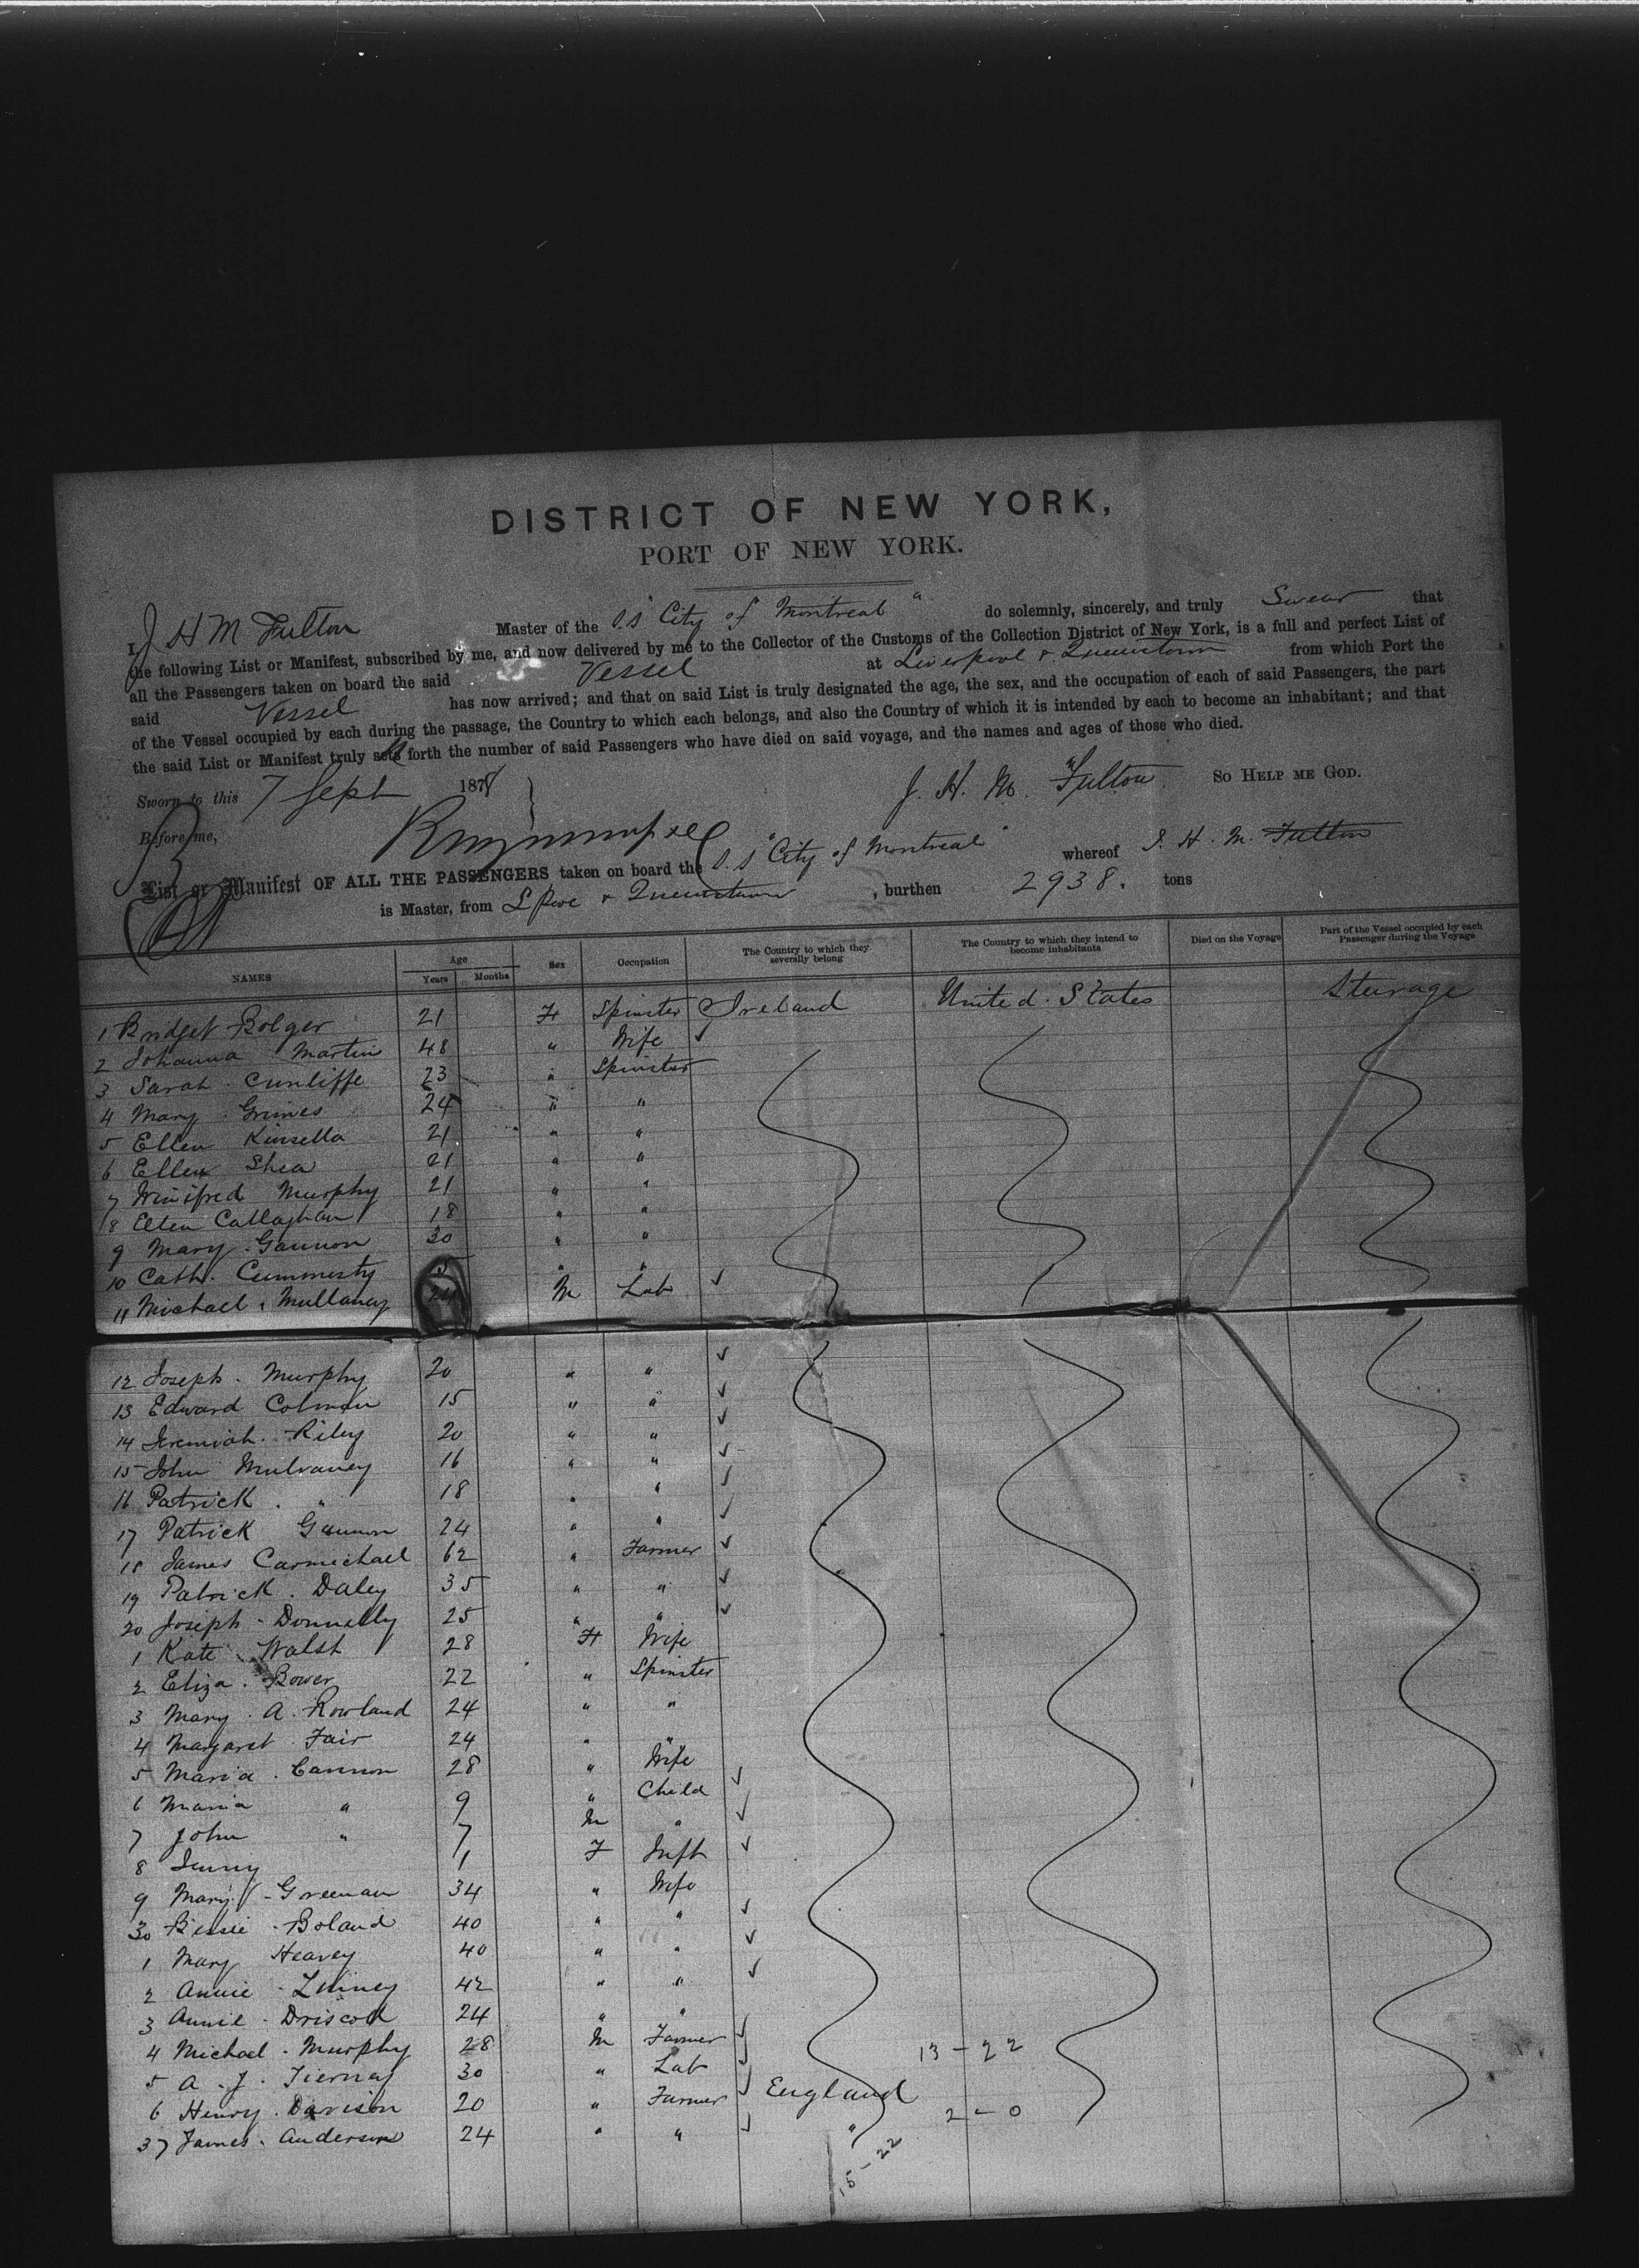 DISTRICT OF NEW YORK,
PORT OF NEW YORK.
I, J H M Fulton Master of the S.S "City of Montreal" do solemnly, sincerely, and truly Swear that
the following List or Manifest, subscribed by me, and now delivered by me to the Collector of the Customs of the Collection District of New York, is a full and perfect List of
all the Passengers taken on board the said Vessel at Liverpool & Queenstown from which Port the
said Vessel has now arrived; and that on said List is truly designated the age, the sex, and the occupation of each of said Passengers, the part
of the Vessel occupied by each during the passage, the Country to which each belongs, and also the Country of which it is intended by each to become an inhabitant; and that
the said List or Manifest truly sets forth the number of said Passengers who have died on said voyage, and the names and ages of those who died.
Sworn to this 7 Sept 1878 J. H. M. Fulton SO HELP ME GOD.
Before me,
List or Manifest OF ALL THE PASSENGERS taken on board the S.S "City of Montreal" whereof J. H. M. Fulton
is Master, from L'Pool & Queenstown, burthen 2938. tons
NAMES Age Years Months Sex Occupation The Country to which they severally belong The Country to which they intend to become inhabitants Died on the Voyage Part of the Vessel occupied by each Passenger during the Voyage
1 Bridget Bolger 21 F Spinster Ireland United States Steerage
2 Johanna Martin 48 " Wife
3 Sarah Cunliffe 23 " Spinster
4 Mary Grimes 24 " "
5 Ellen Kinsella 21 " "
6 Ellen Shea 21 " "
7 Winifred Murphy 21 " "
8 Ellen Callaghan 18 " "
9 Mary Gannon 30 " "
10 Cath. Cummesty " "
11 Michael Mullaney 24 M Lab
12 Joseph Murphy 20 " "
13 Edward Colman 15 " "
14 Jeremiah Riley 20 " "
15 John Mulvaney 16 " "
16 Patrick " 18 " "
17 Patrick Gannon 24 " "
18 James Carmichael 62 " Farmer
19 Patrick Daley 35 " "
20 Joseph Donnelly 25 " "
1 Kate Walsh 28 F Wife
2 Eliza Bower 22 " Spinster
3 Mary A. Rowland 24 " "
4 Margaret Fair 24 " "
5 Maria Cannon 28 " Wife
6 Maria " 9 " Child
7 John " 7 M "
8 Jenny 1 F Inft
9 Mary Greenan 34 " Wife
30 Bessie Boland 40 " "
1 Mary Heavey 40 " "
2 Annie 42 " "
3 Annie Driscoll 24 " "
4 Michael Murphy 28 M Farmer 13-22
5 A. J. Tierney 30 " Lab
6 Henry Davison 20 " Farmer England 2-0
37 James Anderson 24 " " "
15-22